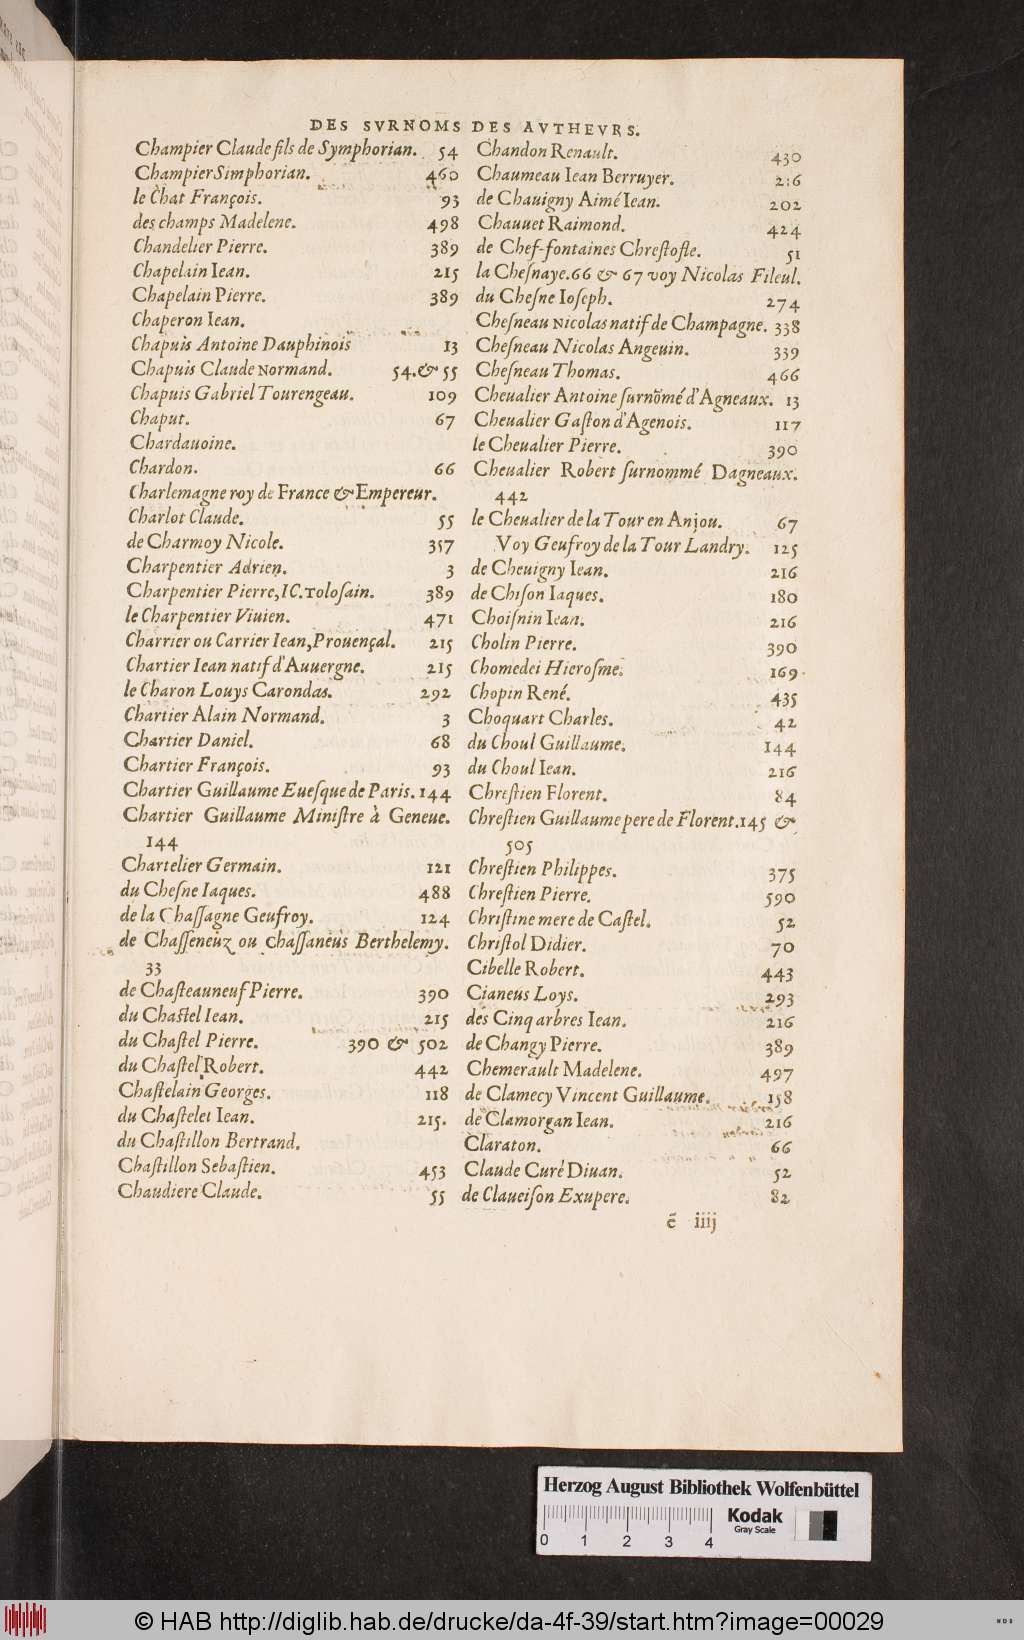 DES SVRNOMS DES AVTHEVRS.
Champier Claude fils de Symphorian. 54
Champier Simphorian. 460
le Chat François. 93
des champs Madelene. 498
Chandelier Pierre. 389
Chapelain Iean. 215
Chapelain Pierre. 389
Chaperon Iean.
Chapuis Antoine Dauphinois 13
Chapuis Claude Normand. 54. & 55
Chapuis Gabriel Tourengeau. 109
Chaput. 67
Chardauoine.
Chardon. 66
Charlemagne roy de France & Empereur.
Charlot Claude. 55
de Charmoy Nicole. 357
Charpentier Adrien. 3
Charpentier Pierre, IC. Tolosain. 389
le Charpentier Viuien. 471
Charrier ou Carrier Iean, Prouençal. 215
Chartier Iean natif d'Auuergne. 215
le Charon Louys Carondas. 292
Chartier Alain Normand. 3
Chartier Daniel. 68
Chartier François. 93
Chartier Guillaume Euesque de Paris. 144
Chartier Guillaume Ministre à Geneue.
144
Chartelier Germain. 121
du Chesne Iaques. 488
de la Chassagne Geufroy. 124
de Chasseneuz ou chassaneus Berthelemy.
33
de Chasteauneuf Pierre. 390
du Chastel Iean. 215
du Chastel Pierre. 390 & 502
du Chastel Robert. 442
Chastelain Georges. 118
du Chastelet Iean. 215.
du Chastillon Bertrand.
Chastillon Sebastien. 453
Chaudiere Claude. 55
Chandon Renault. 430
Chaumeau Iean Berruyer. 216
de Chauigny Aimé Iean. 202
Chauuet Raimond. 424
de Chef-fontaines Chrestofle. 51
la Chesnaye. 66 & 67 voy Nicolas Fileul.
du Chesne Ioseph. 274
Chesneau Nicolas natif de Champagne. 338
Chesneau Nicolas Angeuin. 339
Chesneau Thomas. 466
Cheualier Antoine surnõmé d'Agneaux. 13
Cheualier Gaston d'Agenois. 117
le Cheualier Pierre. 390
Cheualier Robert surnommé Dagneaux.
442
le Cheualier de la Tour en Anjou. 67
Voy Geufroy de la Tour Landry. 125
de Cheuigny Iean. 216
de Chison Iaques. 180
Choisnin Iean. 216
Cholin Pierre. 390
Chomedei Hierosme. 169
Chopin René. 435
Choquart Charles. 42
du Choul Guillaume. 144
du Choul Iean. 216
Chrestien Florent. 84
Chrestien Guillaume pere de Florent. 145 &
505
Chrestien Philippes. 375
Chrestien Pierre. 590
Christine mere de Castel. 52
Christol Didier. 70
Cibelle Robert. 443
Cianeus Loys. 293
des Cinq arbres Iean. 216
de Changy Pierre. 389
Chemerault Madelene. 497
de Clamecy Vincent Guillaume. 158
de Clamorgan Iean. 216
Claraton. 66
Claude Curé Diuan. 52
de Claueison Exupere. 82
ẽ iiij
Herzog August Bibliothek Wolfenbüttel
0 1 2 3 4
Kodak
Gray Scale
© HAB http://diglib.hab.de/drucke/da-4f-39/start.htm?image=00029